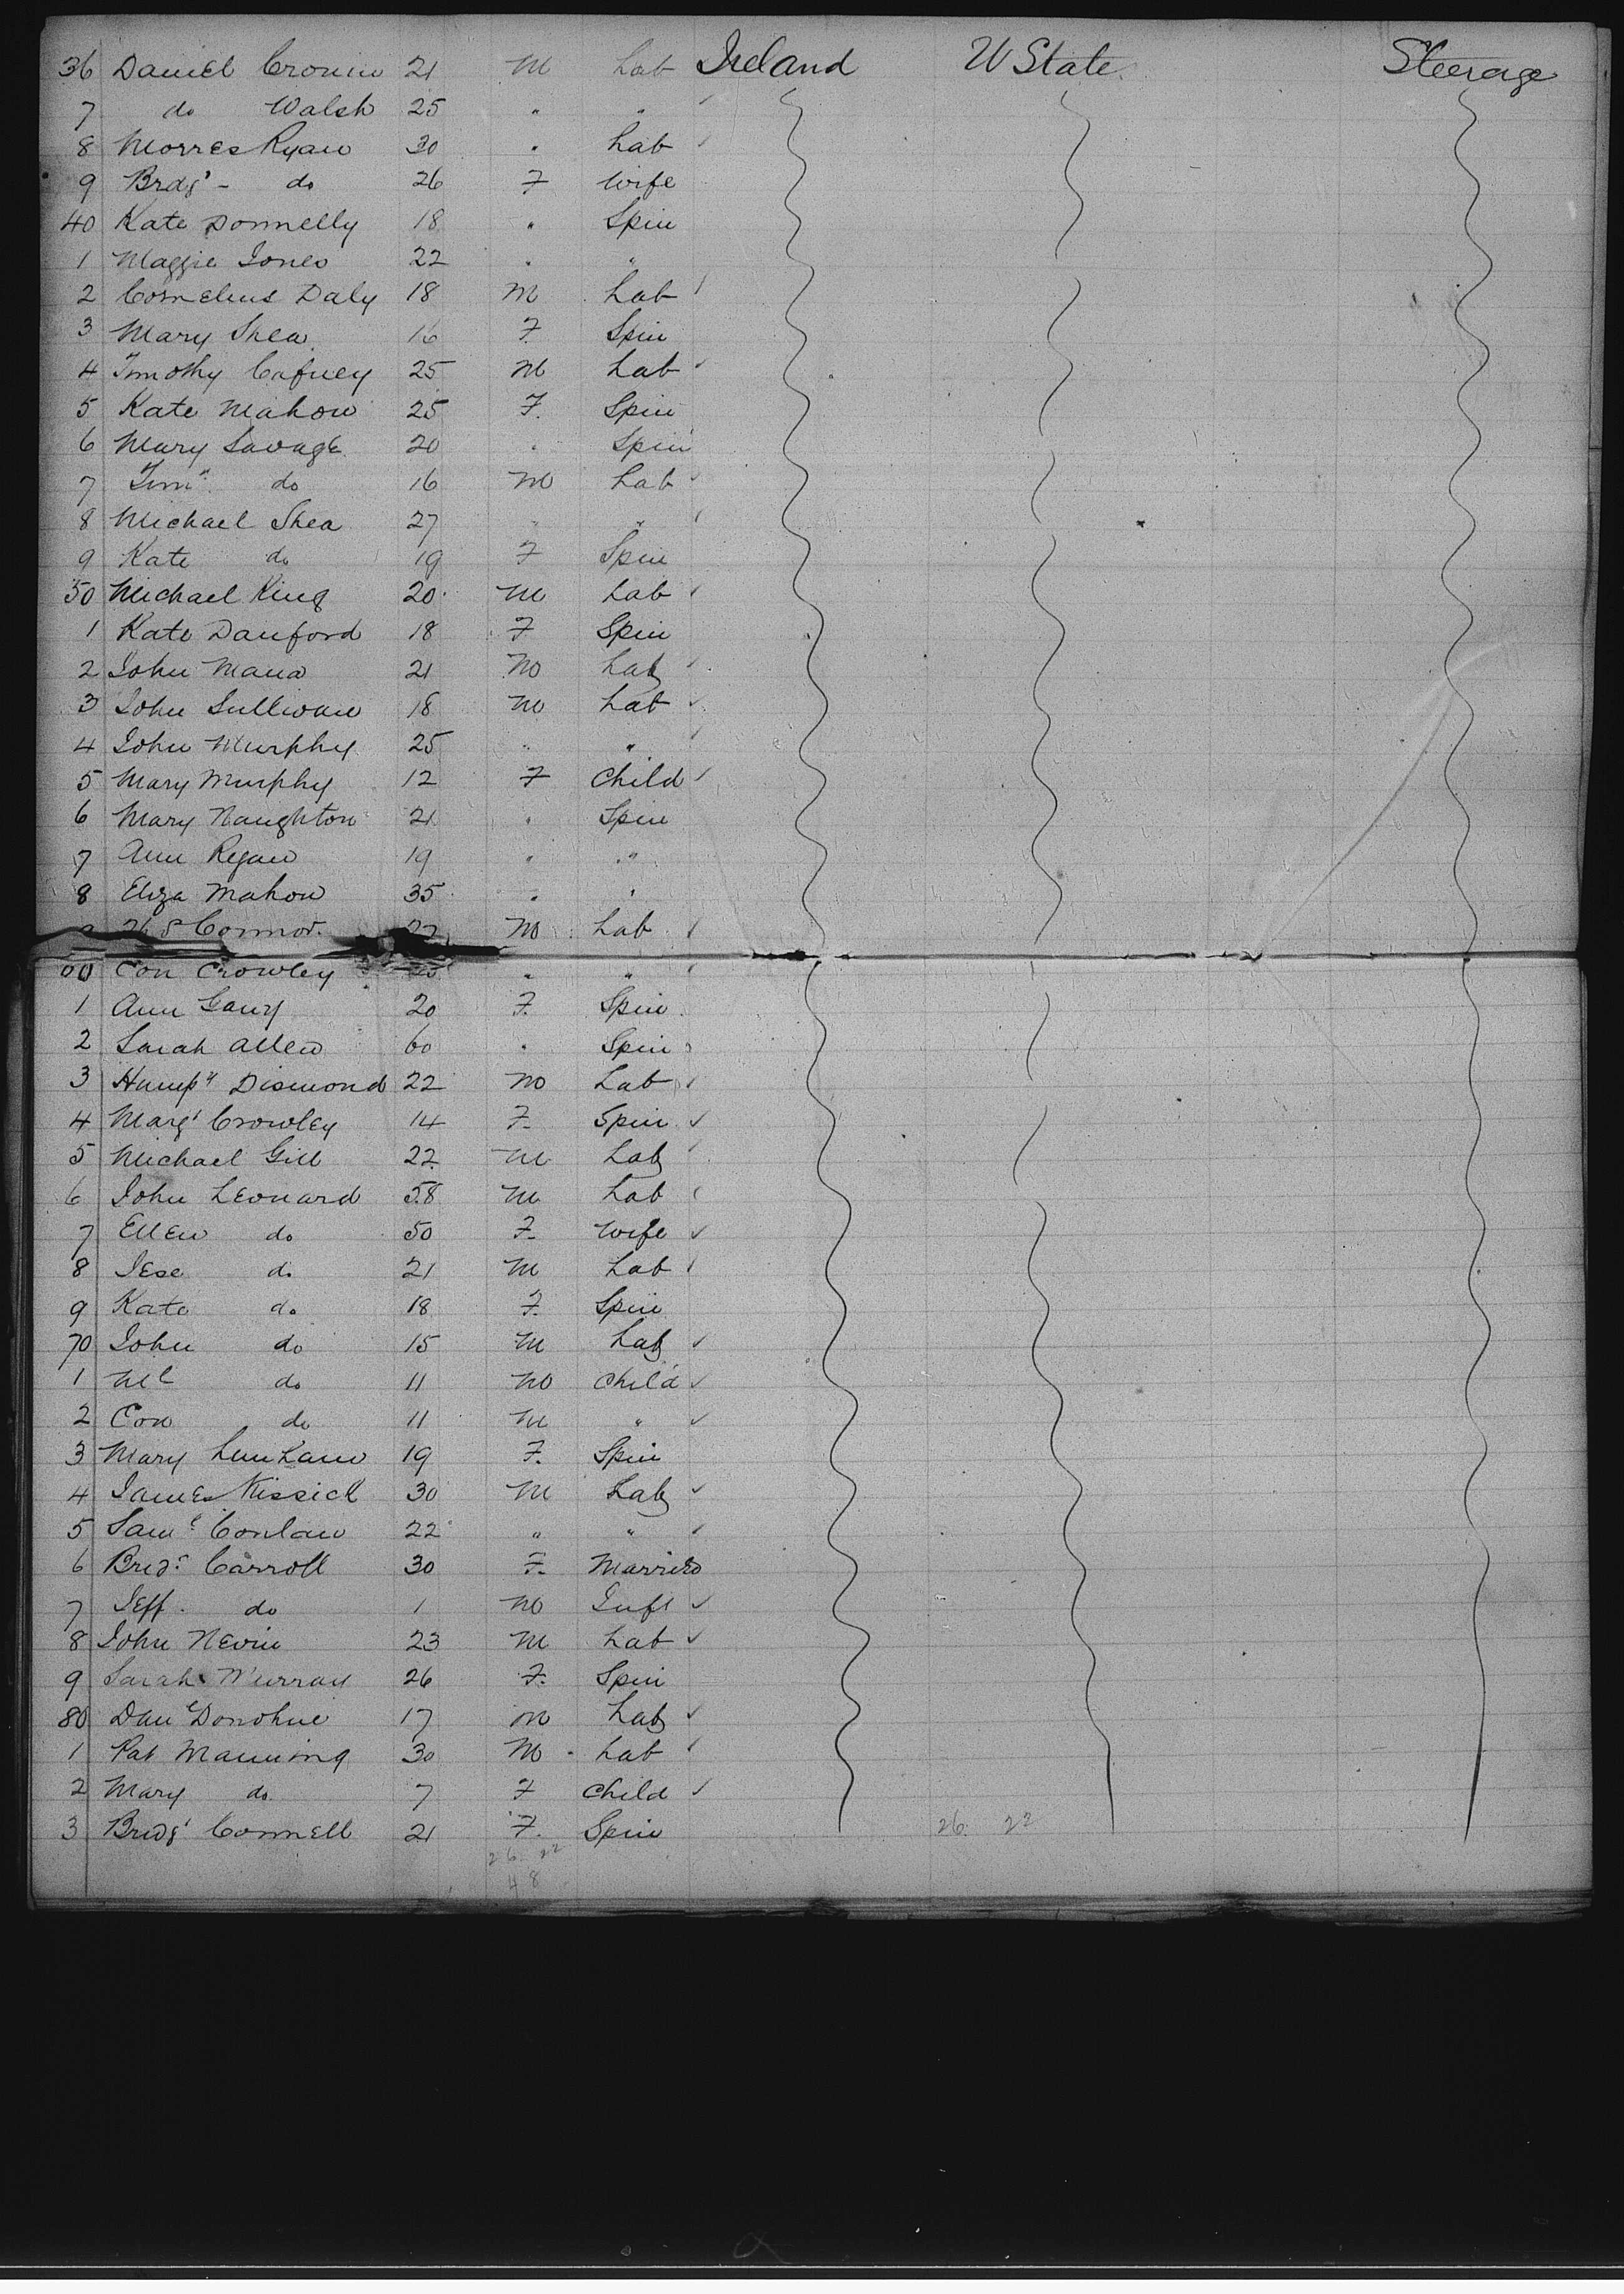 36 Daniel Cronin 21 M Lab Ireland U State Steerage
7 do Walsh 25 " "
8 Morres Ryan 30 " Lab
9 Brdgt - do 26 F Wife
40 Kate Donnelly 18 " Spin
1 Maggie Jones 22 " "
2 Cornelius Daly 18 M Lab
3 Mary Shea 16 F Spin
4 Timothy Cafney 25 M Lab
5 Kate Mahon 25 F Spin
6 Mary Savage 20 " Spin
7 Timy do 16 M Lab
8 Michael Shea 27 " "
9 Kate do 19 F Spin
50 Michael King 20 M Lab
1 Kate Danford 18 F Spin
2 John Mana 21 M Lab
3 John Sullivan 18 M Lab
4 John Murphy 25 " "
5 Mary Murphy 12 F Child
6 Mary Naughton 21 " Spin
7 Ann Regan 19 " "
8 Eliza Mahon 35 " "
Connor 22 M Lab
60 Con Crowley " "
1 Ann Gany 20 F Spin
2 Sarah Allen 60 " Spin
3 Humpy Dismond 22 M Lab
4 Margt Crowley 14 F Spin
5 Michael Gill 22 M Lab
6 John Leonard 58 M Lab
7 Ellen do 50 F Wife
8 Jese do 21 M Lab
9 Kate do 18 F Spin
70 John do 15 M Lab
1 Ml do 11 M Child
2 Con do 11 M "
3 Mary Lenhan 19 F Spin
4 James Kissick 30 M Lab
5 Saml Conlan 22 " "
6 Bridt Carroll 30 F Married
7 Jeff. do 1 M Inft
8 John Nevin 23 M Lab
9 Sarah Murray 26 F Spin
80 Danl Donohue 17 M Lab
1 Pat Manning 30 M Lab
2 Mary do 7 F Child
3 Bridgt Connell 21 F Spin 26 22
26 22
48